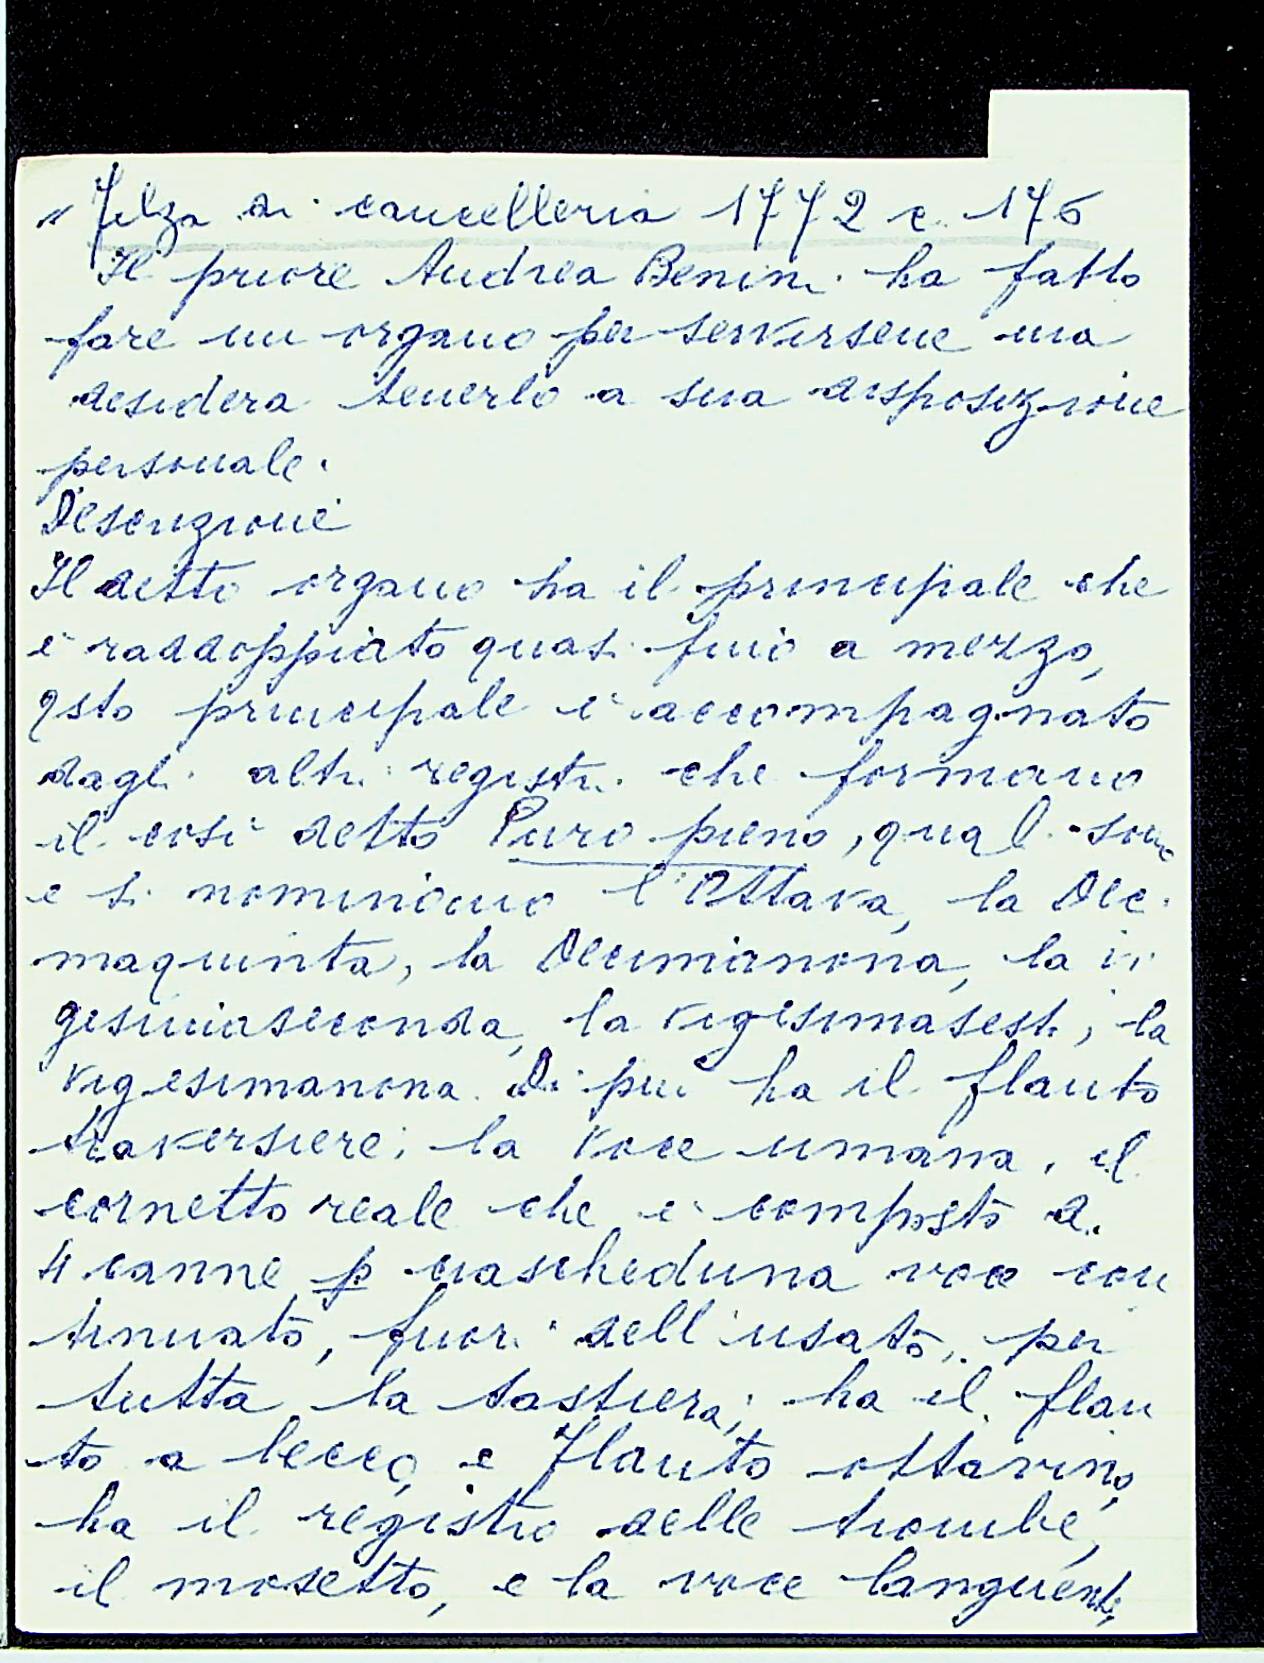 " Filza di cancelleria 1772 c. 176
Il priore Andrea Benini ha fatto
fare un organo per servirsene ma
desidera tenerlo a sua disposizione
personale.
Descrizione
Il detto organo ha il principale che
è raddoppiato quasi fino a mezzo,
qsto principale è accompagnato
dagli altri registri che formano
il così detto Puro pieno, quali sono
e si nominano l'Ottava, la Deci
maquinta, la Decimanona, la vi
gesimaseconda, la vigesimasesta, la
vigesimanona. Di più ha il flauto
traversiere; la voce umana, il
cornetto reale che è composto di
4 canne p ciascheduna voce con
tinuato, fuori dell'usato, per
tutta la tastiera; ha il flau
to a becco e Flauto ottavino,
ha il registro delle trombe,
il mosetto, e la voce languente,